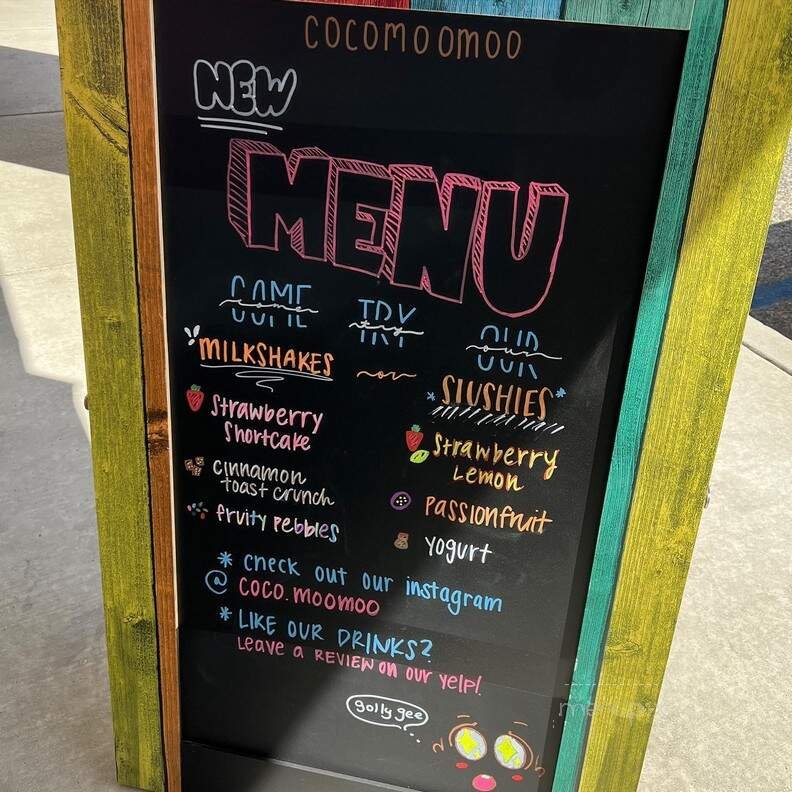 COCOMOOMOO
NEW
MENU
COME come TRY try OUR our
MILKSHAKES or SLUSHIES
Strawberry
Shortcake
cinnamon
toast crunch
fruity pebbles
Strawberry
Lemon
Passionfruit
Yogurt
* check out our instagram
@ COCO.MOOMOO
* LIKE OUR DRINKS?
Leave a REVIEW on our yelp!
golly gee